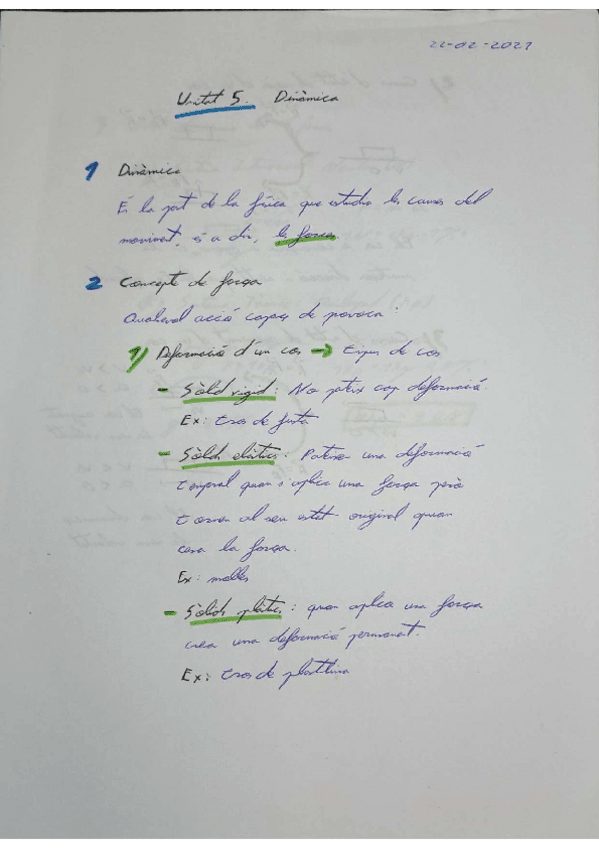 22-02-2021
Unitat 5. Dinàmica
1 Dinàmica
És la part de la física que estudia les causes del
moviment, és a dir, les forces.
2 Concepte de força
Qualsevol acció capaç de provocar:
1) Deformació d'un cos → Tipus de cos
- Sòlid rígid: No pateix cap deformació.
Ex: tros de fusta
- Sòlids elàstics: Pateixen una deformació
temporal quan s'aplica una força però
tornen al seu estat original quan
cessa la força.
Ex: molles
- Sòlids plàstics: quan aplica una força
crea una deformació permanent.
Ex: tros de plastilina